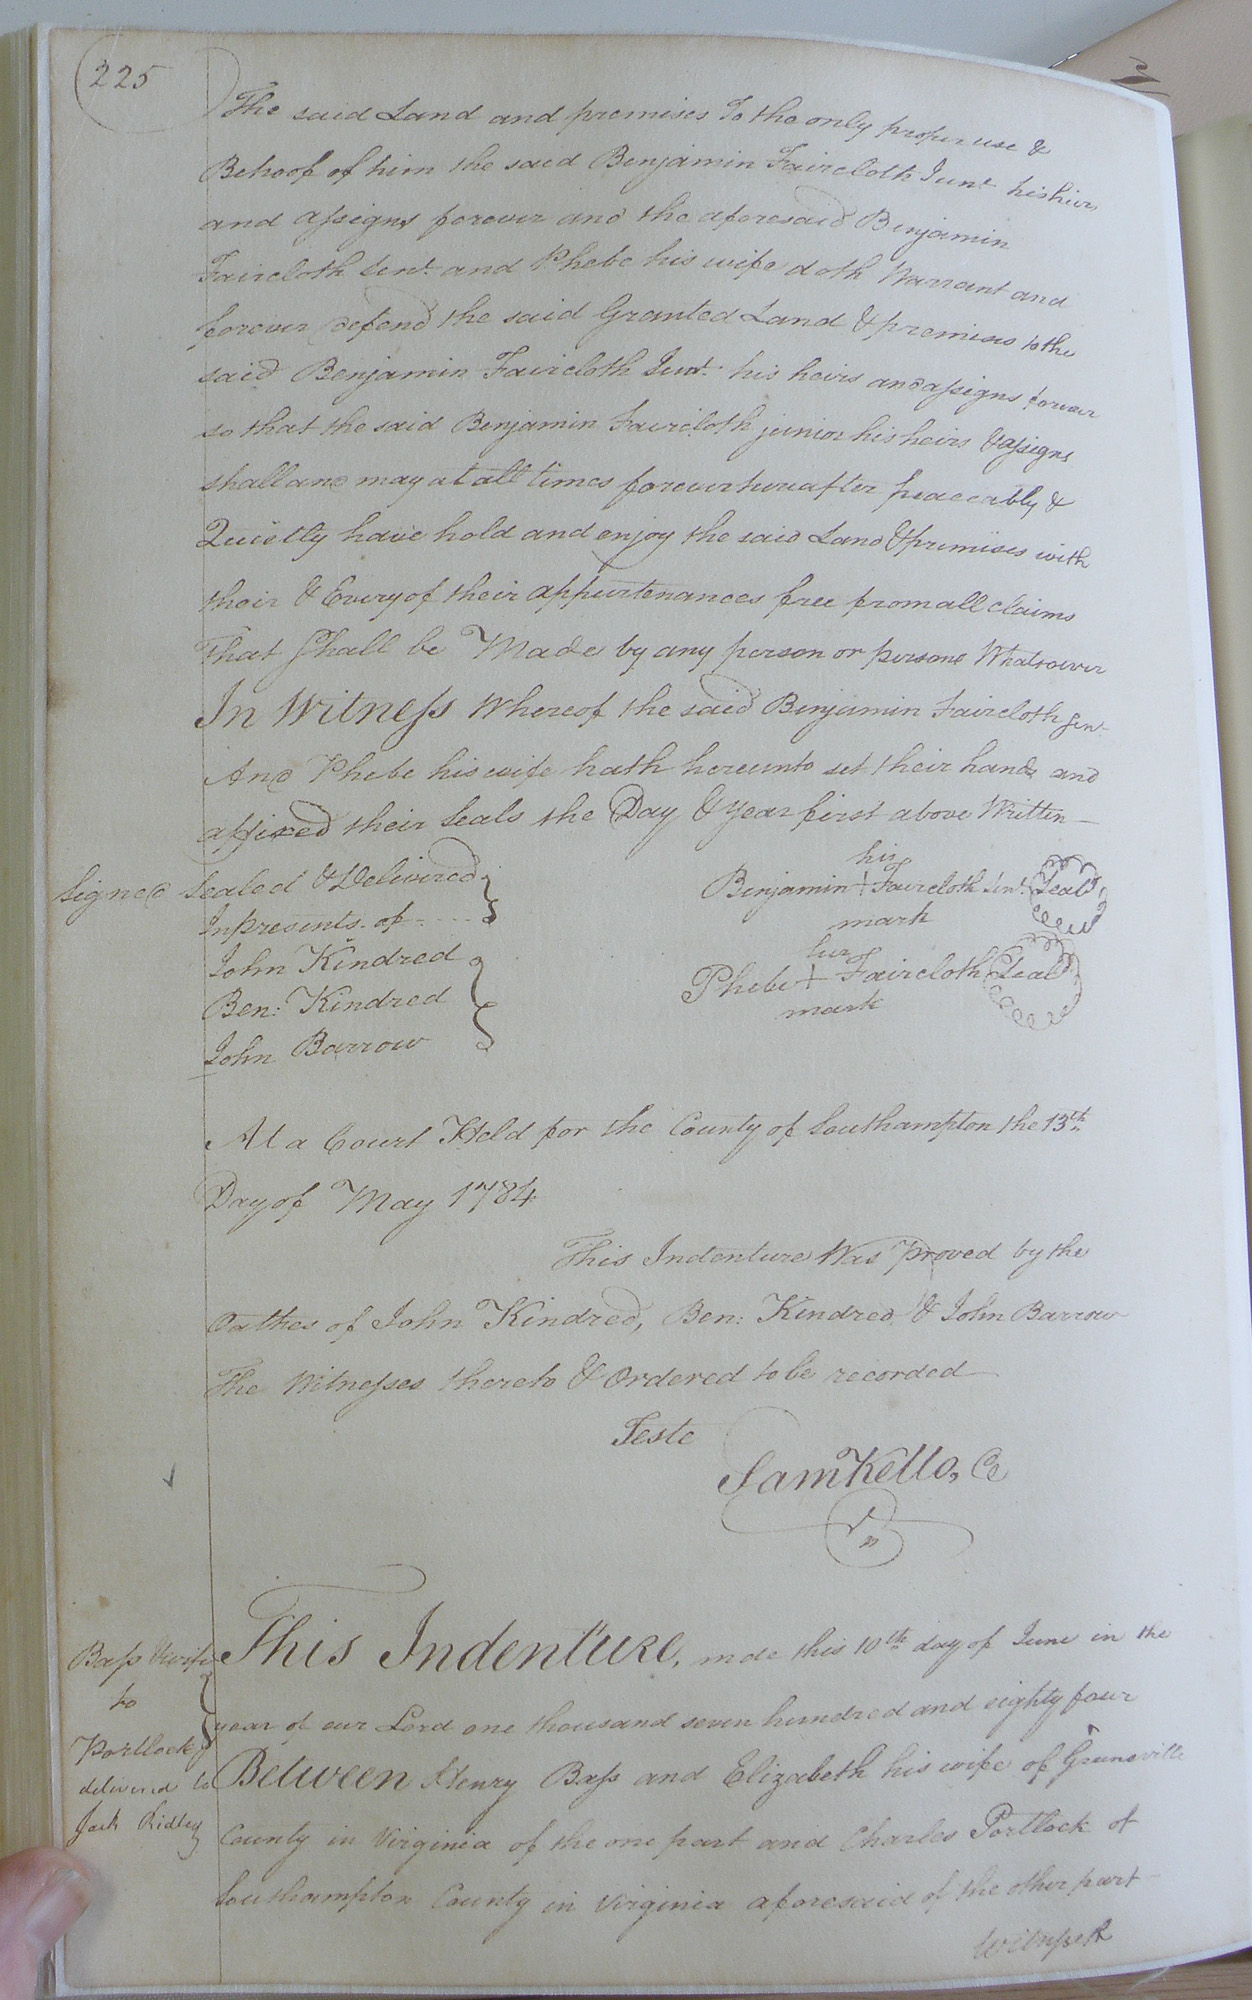 225
The said Land and premises To the only proper use &
Behoof of him the said Benjamin Faircloth Junr his heirs
and assigns forever and the aforesaid Benjamin
Faircloth Senr and Phebe his wife doth Warrant and
forever defend the said Granted Land & premises to the
said Benjamin Faircloth Junr. his heirs and assigns forever
so that the said Benjamin Faircloth junior his heirs & assigns
shall and may at all times forever hereafter peaceably &
Quietly have hold and enjoy the said Land & premises with
their & Every of their appurtenances free from all claims
That Shall be Made by any person or persons Whatsoever
In Witness Whereof the said Benjamin Faircloth Senr
And Phebe his wife hath hereunto set their hands and
affixed their Seals the Day & Year first above Written
Signed Sealed & Delivered
In presents of
John Kindred
Ben: Kindred
John Barrow
his
Benjamin + Faircloth Senr. Seal
mark
her
Phebe + Faircloth Seal
mark
At a Court Held for the County of Southampton the 13th
Day of May 1784
This Indenture Was Proved by the
Oathes of John Kindred, Ben: Kindred & John Barrow
The Witnesses thereto & Ordered to be recorded
Teste
Sam Kello, Ce
Bass & wife
to
Portlock
delivered to
Jack Ridley
This Indenture, made this 10th day of June in the
year of our Lord one thousand seven hundred and eighty four
Between Henry Bass and Elizabeth his wife of Greensville
County in Virginia of the one part and Charles Portlock of
Southampton County in Virginia aforesaid of the other part
Witnesseth